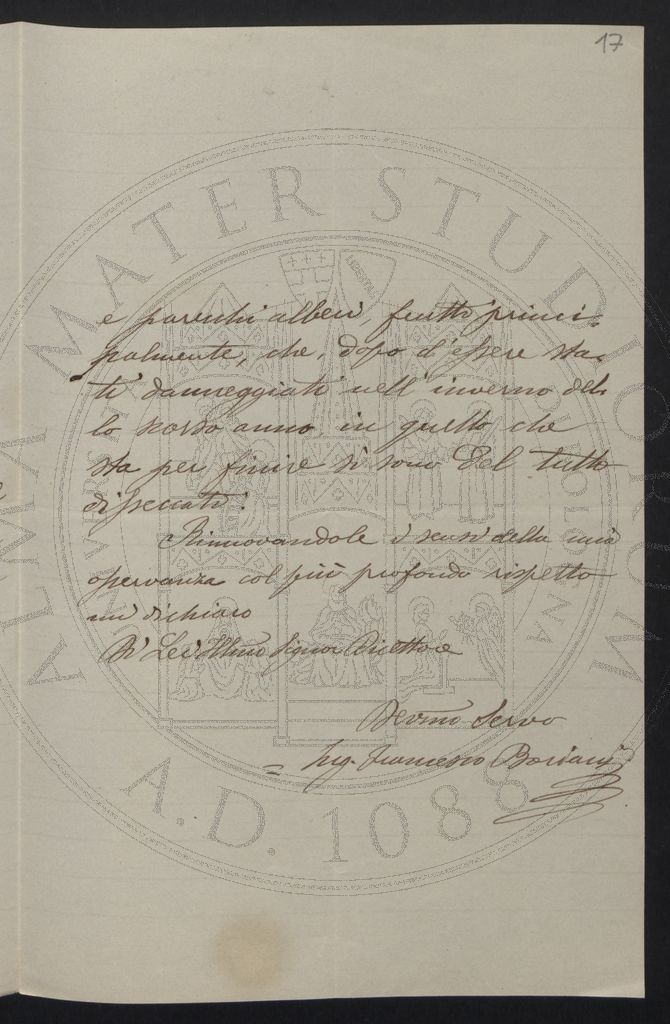 17
e parecchi alberi, frutti princi-
palmente, che, dopo d'essere sta-
ti danneggiati nell'inverno del-
lo scorso anno in quello che
sta per finire si sono del tutto
disseccati.
Rinnovandole i sensi della mia
osservanza col più profondo rispetto
mi dichiaro
Di Lei Illmo Signor Direttore
Devmo Servo
Ing. Francesco
ALMA MATER STUDIORUM
A.D. 1088